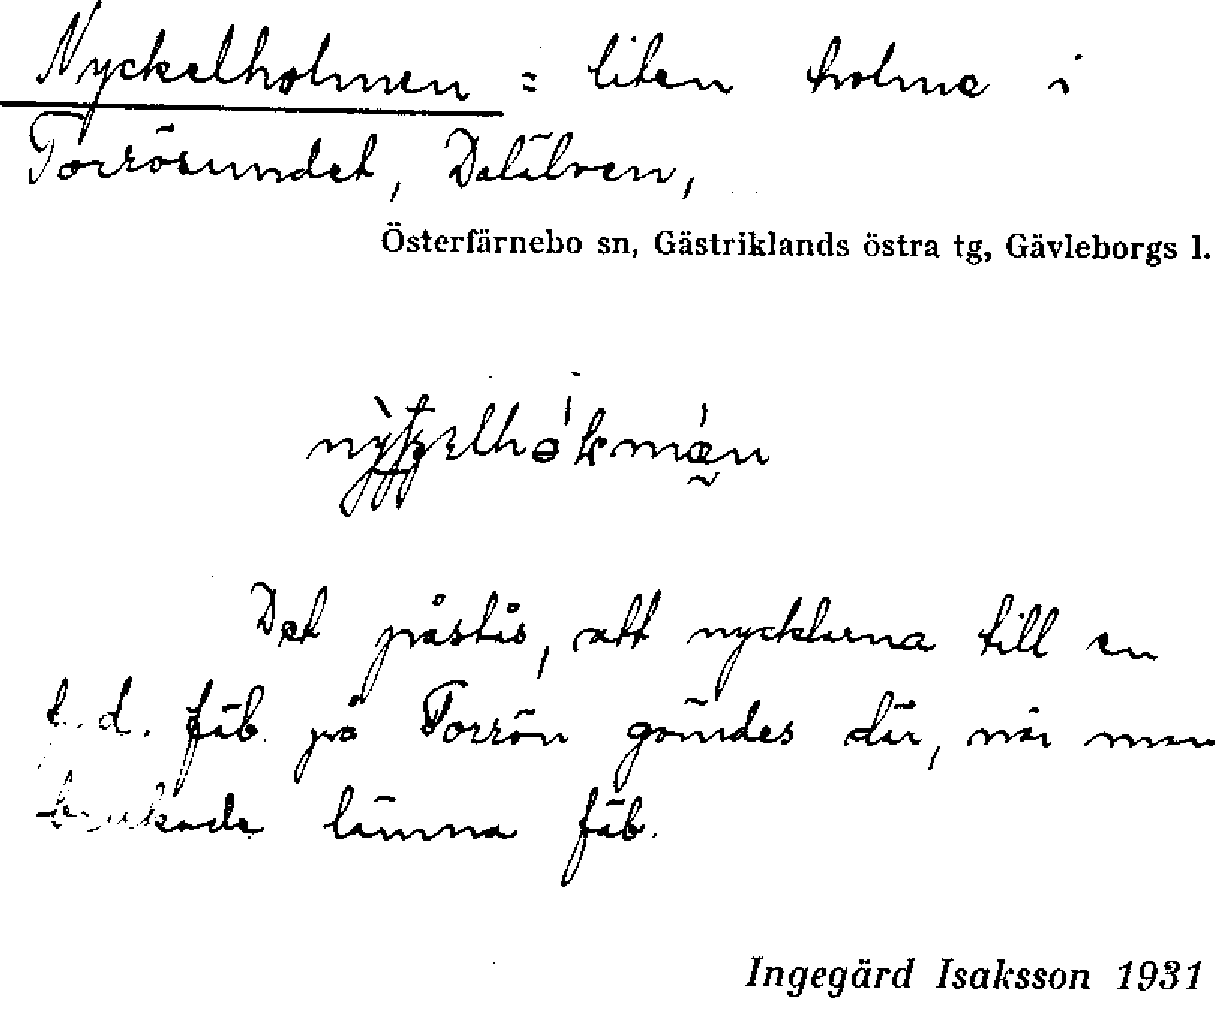 Nyckelholmen = liten holme i
Torrösundet, Dalälven,
Österfärnebo sn, Gästriklands östra tg, Gävleborgs l.
Det påstås, att nycklarna till en
f.d. fäb. på Torrön gömdes där, när man
brukade lämna fäb.
Ingegärd Isaksson 1931